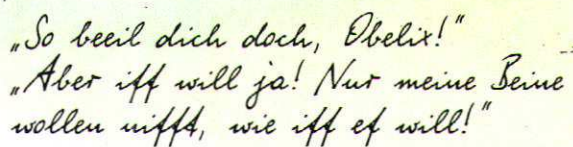 „So beeil dich doch, Obelix!“
„Aber iff will ja! Nur meine Beine
wollen nifft, wie iff ef will!“